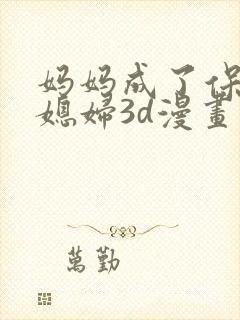 妈妈成了保
媳婦3d漫畫
萬勤